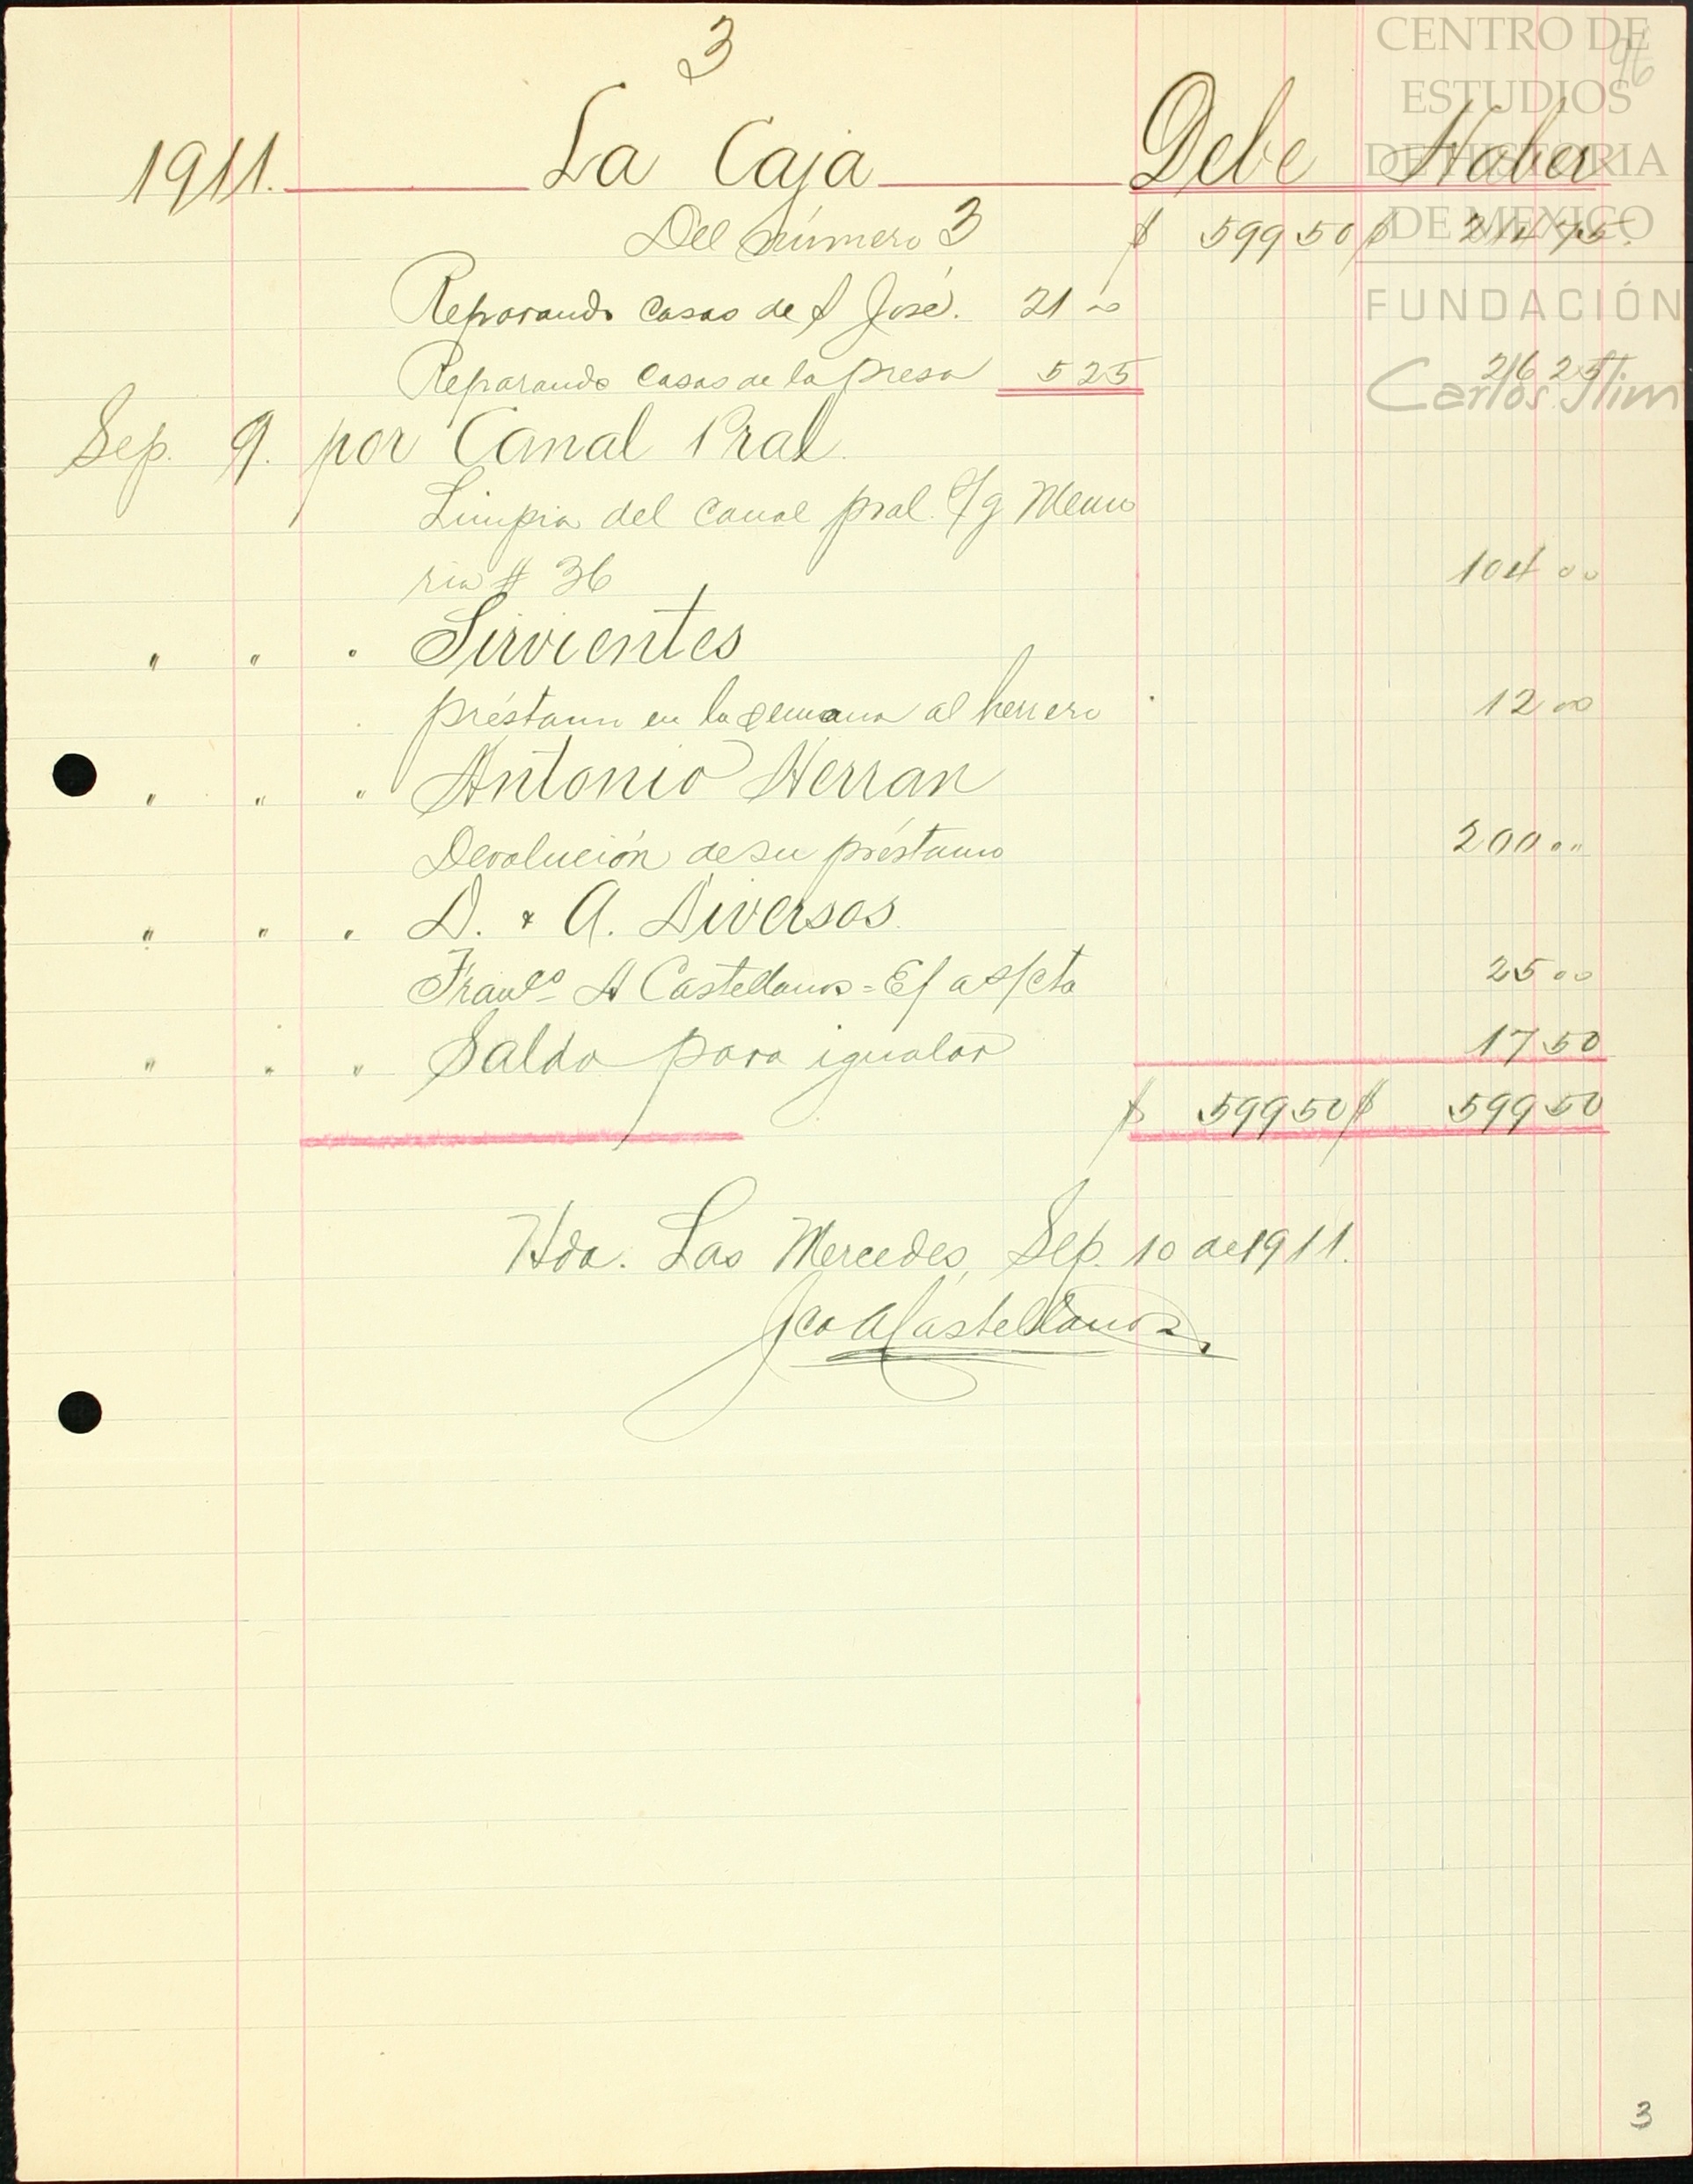 3
96
CENTRO DE
ESTUDIOS
DE HISTORIA
DE MEXICO
FUNDACIÓN
Carlos Slim
1911. La Caja Debe Haber
Del número 3 $ 599 50 $ 214 75
Reparando casas de S José. 21 00
Reparando casas de la presa 5 25 26 25
Sep. 9. por Canal Pral.
Limpia del canal pral. s/g Memo
ria # 36 104 00
" " " Sirvientes
préstamo en la semana al herrero 12 00
" " " Antonio Herran
Devolución de su préstamo 200 00
" " " D. & A. Diversos.
Franco A Castellanos = Ef a s/cta 25 00
" " " Saldo para igualar 17 50
$ 599 50 $ 599 50
Hda. Las Mercedes, Sep. 10 de 1911.
Fco A Castellanos
3